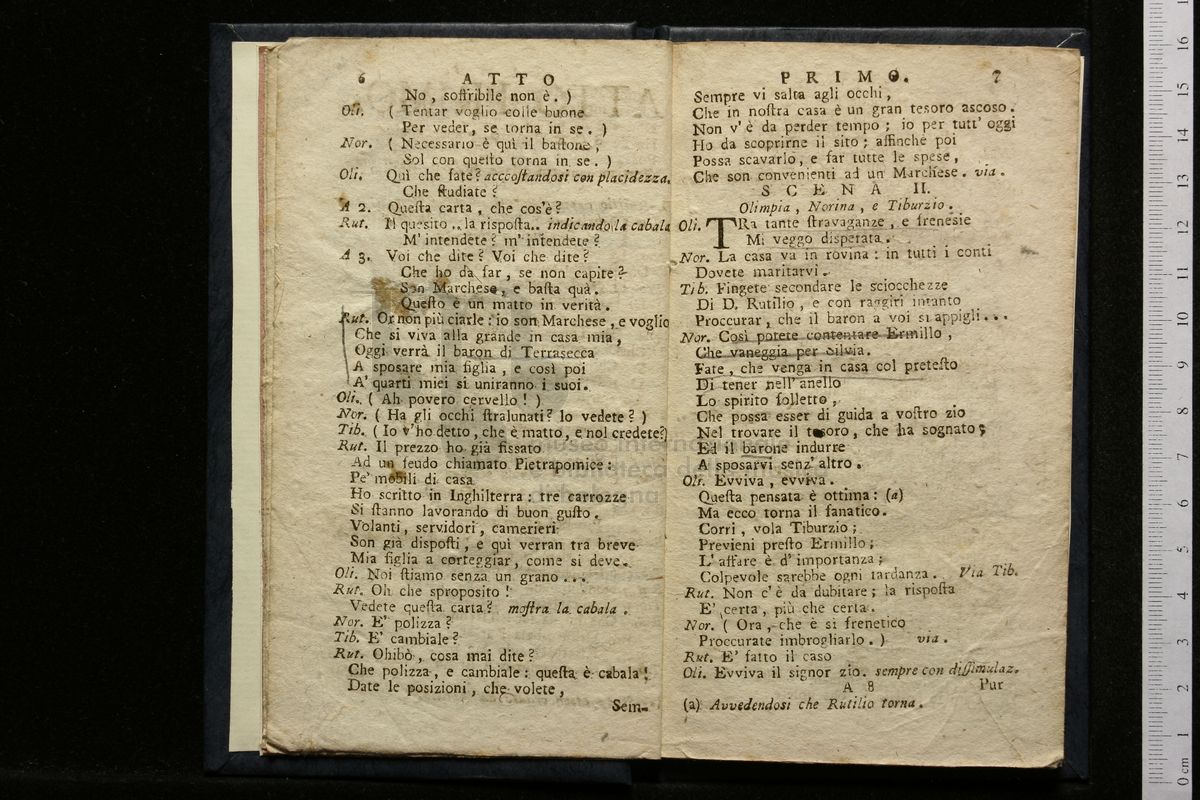 6 ATTO
No, soffribile non è. )
Oli. ( Tentar voglio colle buone
Per veder, se torna in se. )
Nor. ( Necessario è quì il bastone,
Sol con questo torna in se. )
Oli. Quì che fate? acccostandosi con placidezza.
Che studiate?
A 2. Questa carta, che cos'è?
Rut. Il quesito .. la risposta.. indicando la cabala
M'intendete? m'intendete?
A 3. Voi che dite? Voi che dite?
Che ho da far, se non capite?
Son Marchese, e basta quà.
Questo è un matto in verità.
Rut. Or non più ciarle: io son Marchese, e voglio
Che si viva alla grande in casa mia,
Oggi verrà il baron di Terrasecca
A sposare mia figlia, e così poi
A' quarti miei si uniranno i suoi.
Oli. ( Ah povero cervello! )
Nor. ( Ha gli occhi stralunati? lo vedete? )
Tib. ( Io v'ho detto, che è matto, e nol credete?)
Rut. Il prezzo ho già fissato
Ad un feudo chiamato Pietrapomice:
Pe' mobili di casa
Ho scritto in Inghilterra: tre carrozze
Si stanno lavorando di buon gusto.
Volanti, servidori, camerieri
Son già disposti, e quì verran tra breve
Mia figlia a corteggiar, come si deve.
Oli. Noi stiamo senza un grano...
Rut. Oh che sproposito!
Vedete questa carta? mostra la cabala.
Nor. E' polizza?
Tib. E' cambiale?
Rut. Ohibò, cosa mai dite?
Che polizza, e cambiale: questa è cabala!
Date le posizioni, che volete,
Sem-
PRIMO. 7
Sempre vi salta agli occhi,
Che in nostra casa è un gran tesoro ascoso.
Non v'è da perder tempo; io per tutt' oggi
Ho da scoprirne il sito; affinchè poi
Possa scavarlo, e far tutte le spese,
Che son convenienti ad un Marchese. via.
SCENA II.
Olimpia, Norina, e Tiburzio.
Oli. TRa tante stravaganze, e frenesie
Mi veggo disperata.
Nor. La casa va in rovina: in tutti i conti
Dovete maritarvi.
Tib. Fingete secondare le sciocchezze
Di D. Rutilio, e con raggiri intanto
Proccurar, che il baron a voi si appigli...
Nor. Così potete contentare Ermillo,
Che vaneggia per Silvia.
Fate, che venga in casa col pretesto
Di tener nell'anello
Lo spirito folletto,
Che possa esser di guida a vostro zio
Nel trovare il tesoro, che ha sognato;
Ed il barone indurre
A sposarvi senz'altro.
Oli. Evviva, evviva.
Questa pensata è ottima: (a)
Ma ecco torna il fanatico.
Corri, vola Tiburzio;
Previeni presto Ermillo;
L'affare è d'importanza;
Colpevole sarebbe ogni tardanza. Via Tib.
Rut. Non c'è da dubitare; la risposta
E' certa, più che certa.
Nor. ( Ora, che è sì frenetico
Proccurate imbrogliarlo. ) via.
Rut. E' fatto il caso
Oli. Evviva il signor zio. sempre con dissimulaz.
A 8 Pur
(a) Avvedendosi che Rutilio torna.